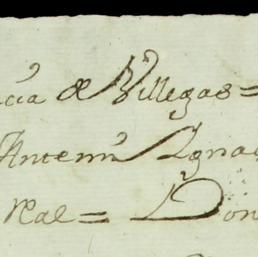 cia de Villegas =
Antem Ignac
Real = Don